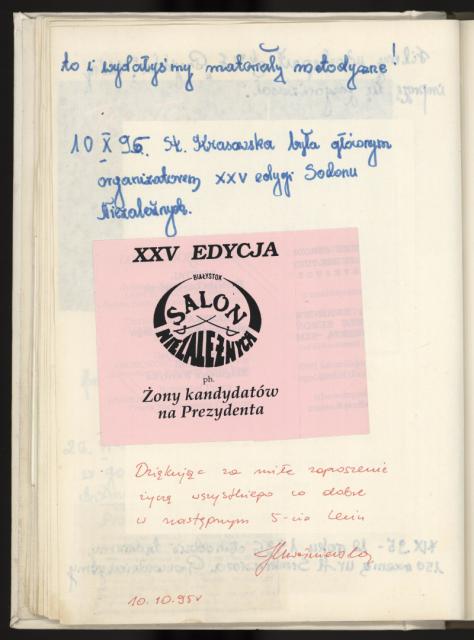 to i wydałyśmy materiały metodyczne!
10 X 95. St. Krasowska była głównym
organizatorem XXV edycji Salonu
Niezależnych.
XXV EDYCJA
BIAŁYSTOK
SALON
NIEZALEŻNYCH
ph.
Żony kandydatów
na Prezydenta
Dziękując za miłe zaproszenie
życzę wszystkiego co dobre
w następnym 5-cio leciu
10.10.95r